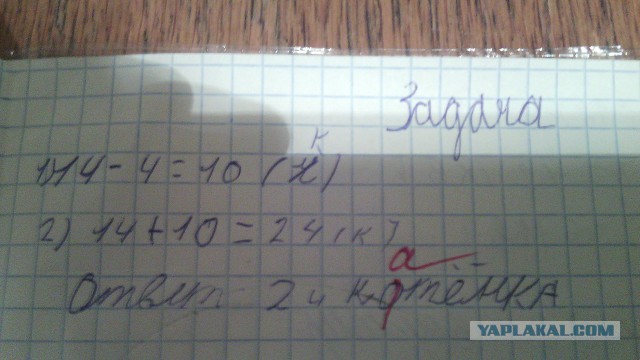 Задача
1) 14 - 4 = 10 (к)
2) 14 + 10 = 24 (к)
а
Ответ 24 котёнка
YAPLAKAL.COM